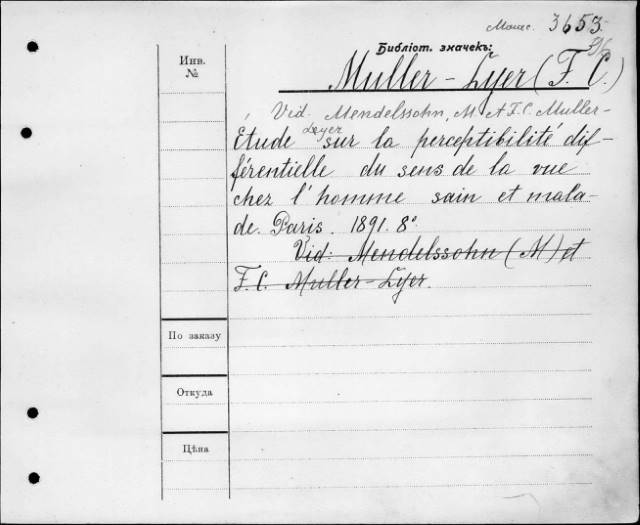 3653
Библіот. значекъ:
Инв.
№
Muller-Lyer (F. C.)
Vid. Mendelssohn, M. et F. C. Muller-
Leyer
Étude sur la perceptibilité dif-
férentielle du sens de la vue
chez l'homme sain et mala-
de. Paris. 1891. 8°.
Vid: Mendelssohn (M) et
F. C. Muller-Lyer.
По заказу
Откуда
Цѣна